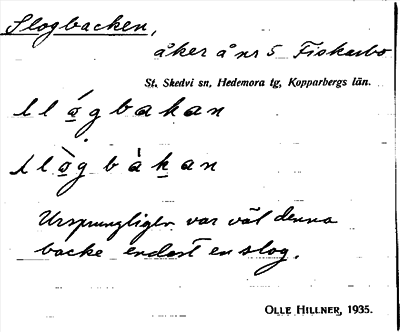 Slogbacken,
åker å nr 5 Fiskarbo
St. Skedvi sn, Hedemora tg, Kopparbergs län.
Ursprungligen var väl denna
backe endast en slog.
OLLE HILLNER, 1935.